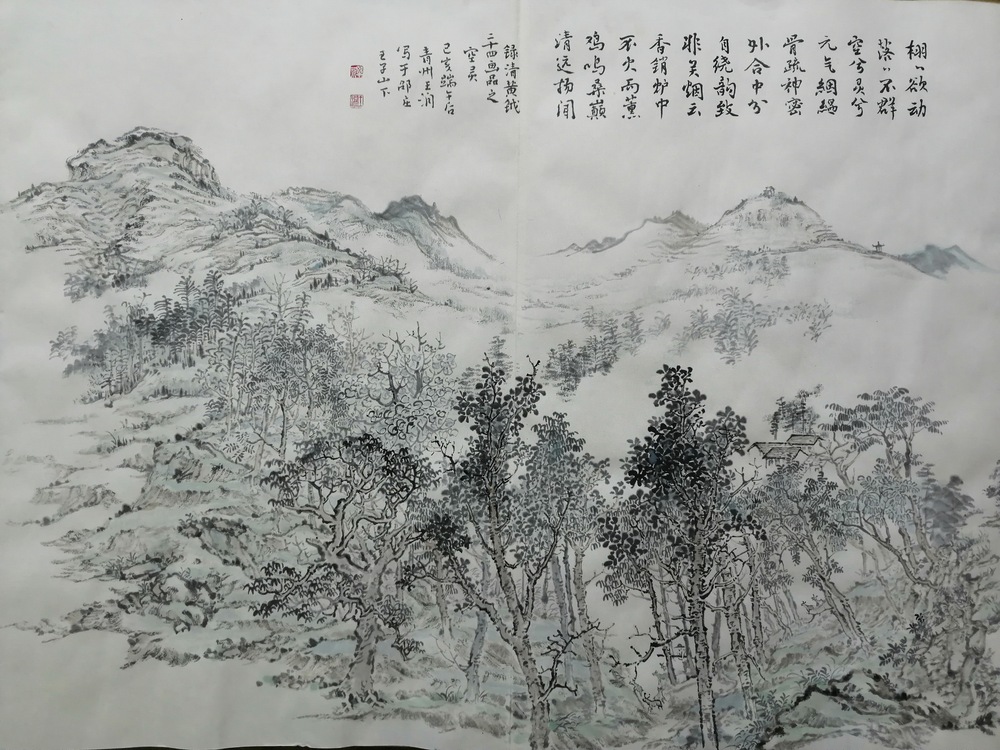 栩々欲动
落々不群
空兮灵兮
元气絪緼
骨疏神密
外合中分
自绕韵致
非关烟云
香销炉中
不火而薰
鸡鸣桑巅
清远扬闻
録清黄钺
二十四画品之
空灵
己亥端午后
青州王润
写于邵庄
王子山下